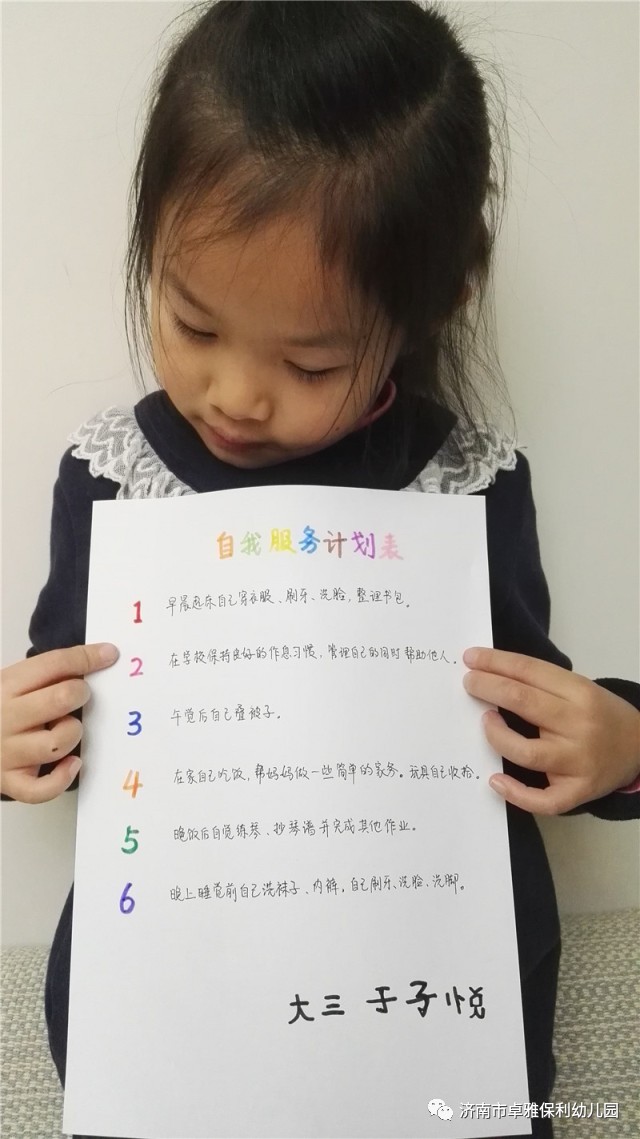 自我服务计划表
1 早晨起床自己穿衣服、刷牙、洗脸,整理书包。
2 在学校保持良好的作息习惯,管理自己的同时帮助他人。
3 午觉后自己叠被子。
4 在家自己吃饭,帮妈妈做一些简单的家务。玩具自己收拾。
5 晚饭后自觉练琴、抄琴谱并完成其他作业。
6 晚上睡觉前自己洗袜子、内裤。自己刷牙、洗脸、洗脚。
大三 于子悦
济南市卓雅保利幼儿园